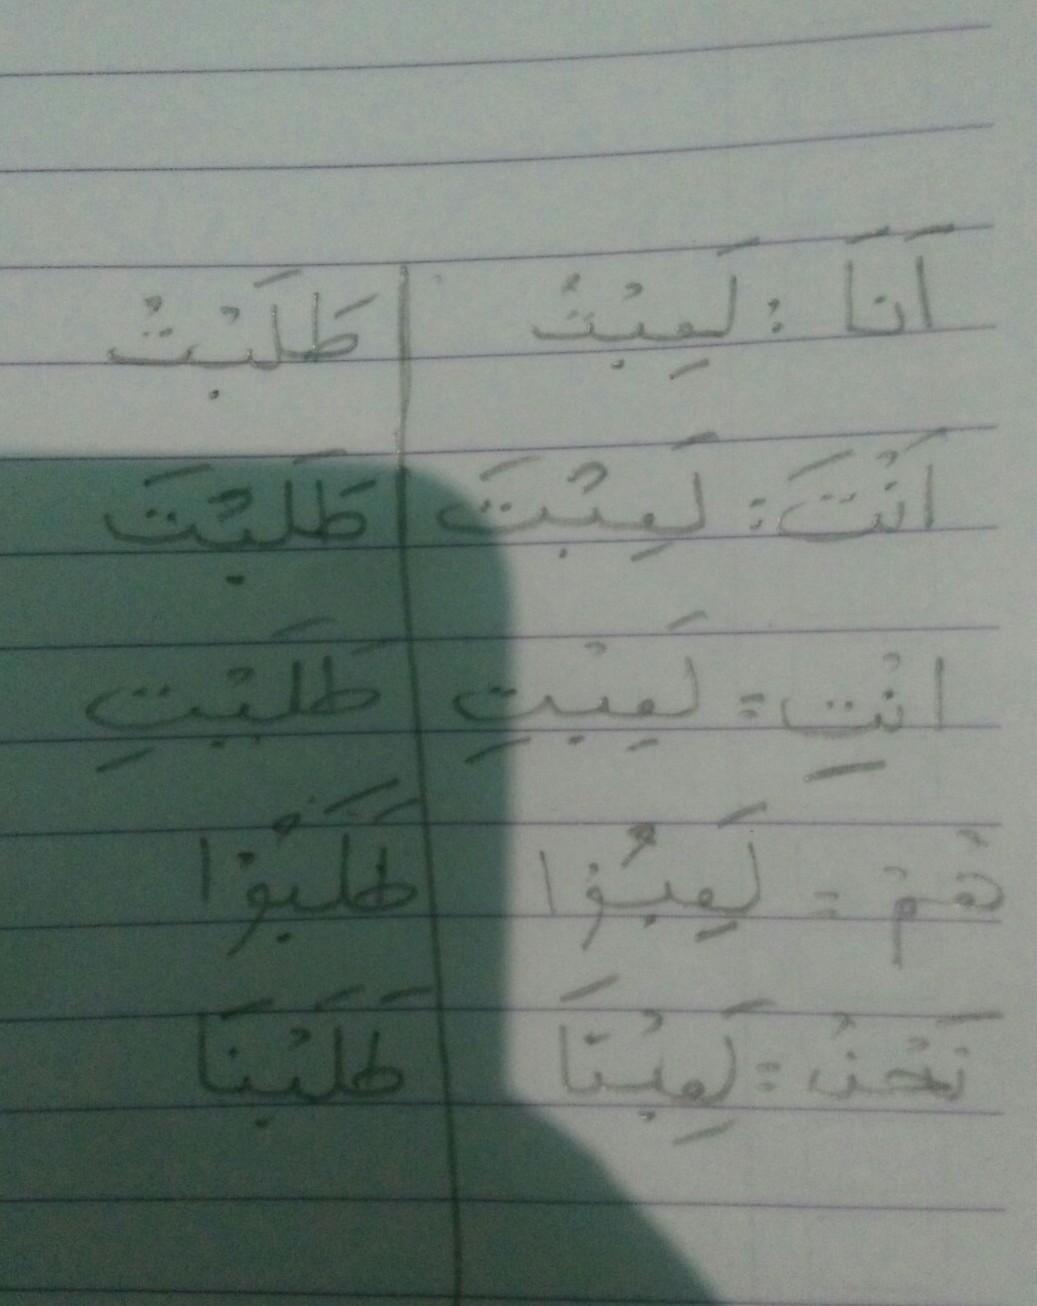 اَنَا : لَعِبْتُ | طَلَبْتُ
اَنْتَ : لَعِبْتَ | طَلَبْتَ
انْتِ = لَعِبْتِ | طَلَبْتِ
هُمْ = لَعِبُوْا | طَلَبُوْا
نَحْنُ = لَعِبْنَا | طَلَبْنَا